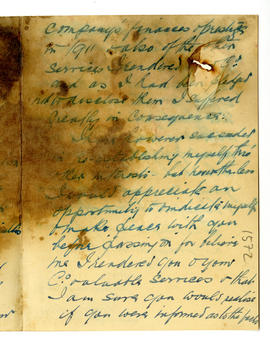 Company's finances & prestige
in 1911 & also of the
services I rendered
and as I had been
not to disclose them I suffered
Greatly in Consequence.
I have however succeeded
in re-establishing myself thro'
other interests - but nonetheless
I would appreciate an
opportunity to vindicate myself
& make peace with you
before passing on for believe
me I rendered you & your
Co valuable services & that
I am sure you would realise
if you were informed as to the facts
1522